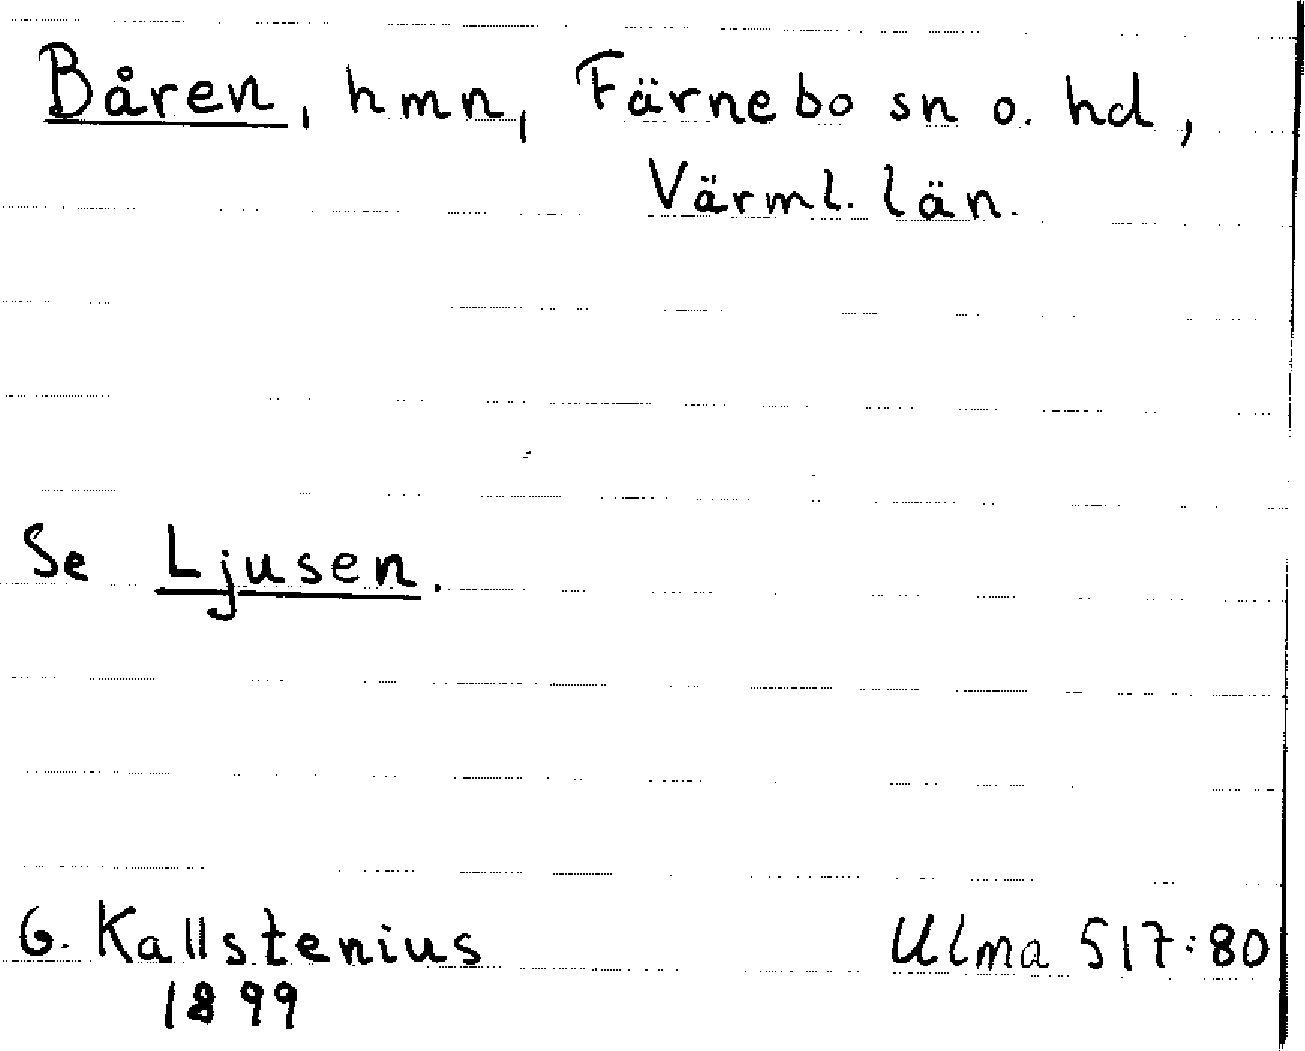 Båren, hmn, Färnebo sn o. hd,
Värml. län.
Se Ljusen.
G. Kallstenius
1899
Ulma 517:80